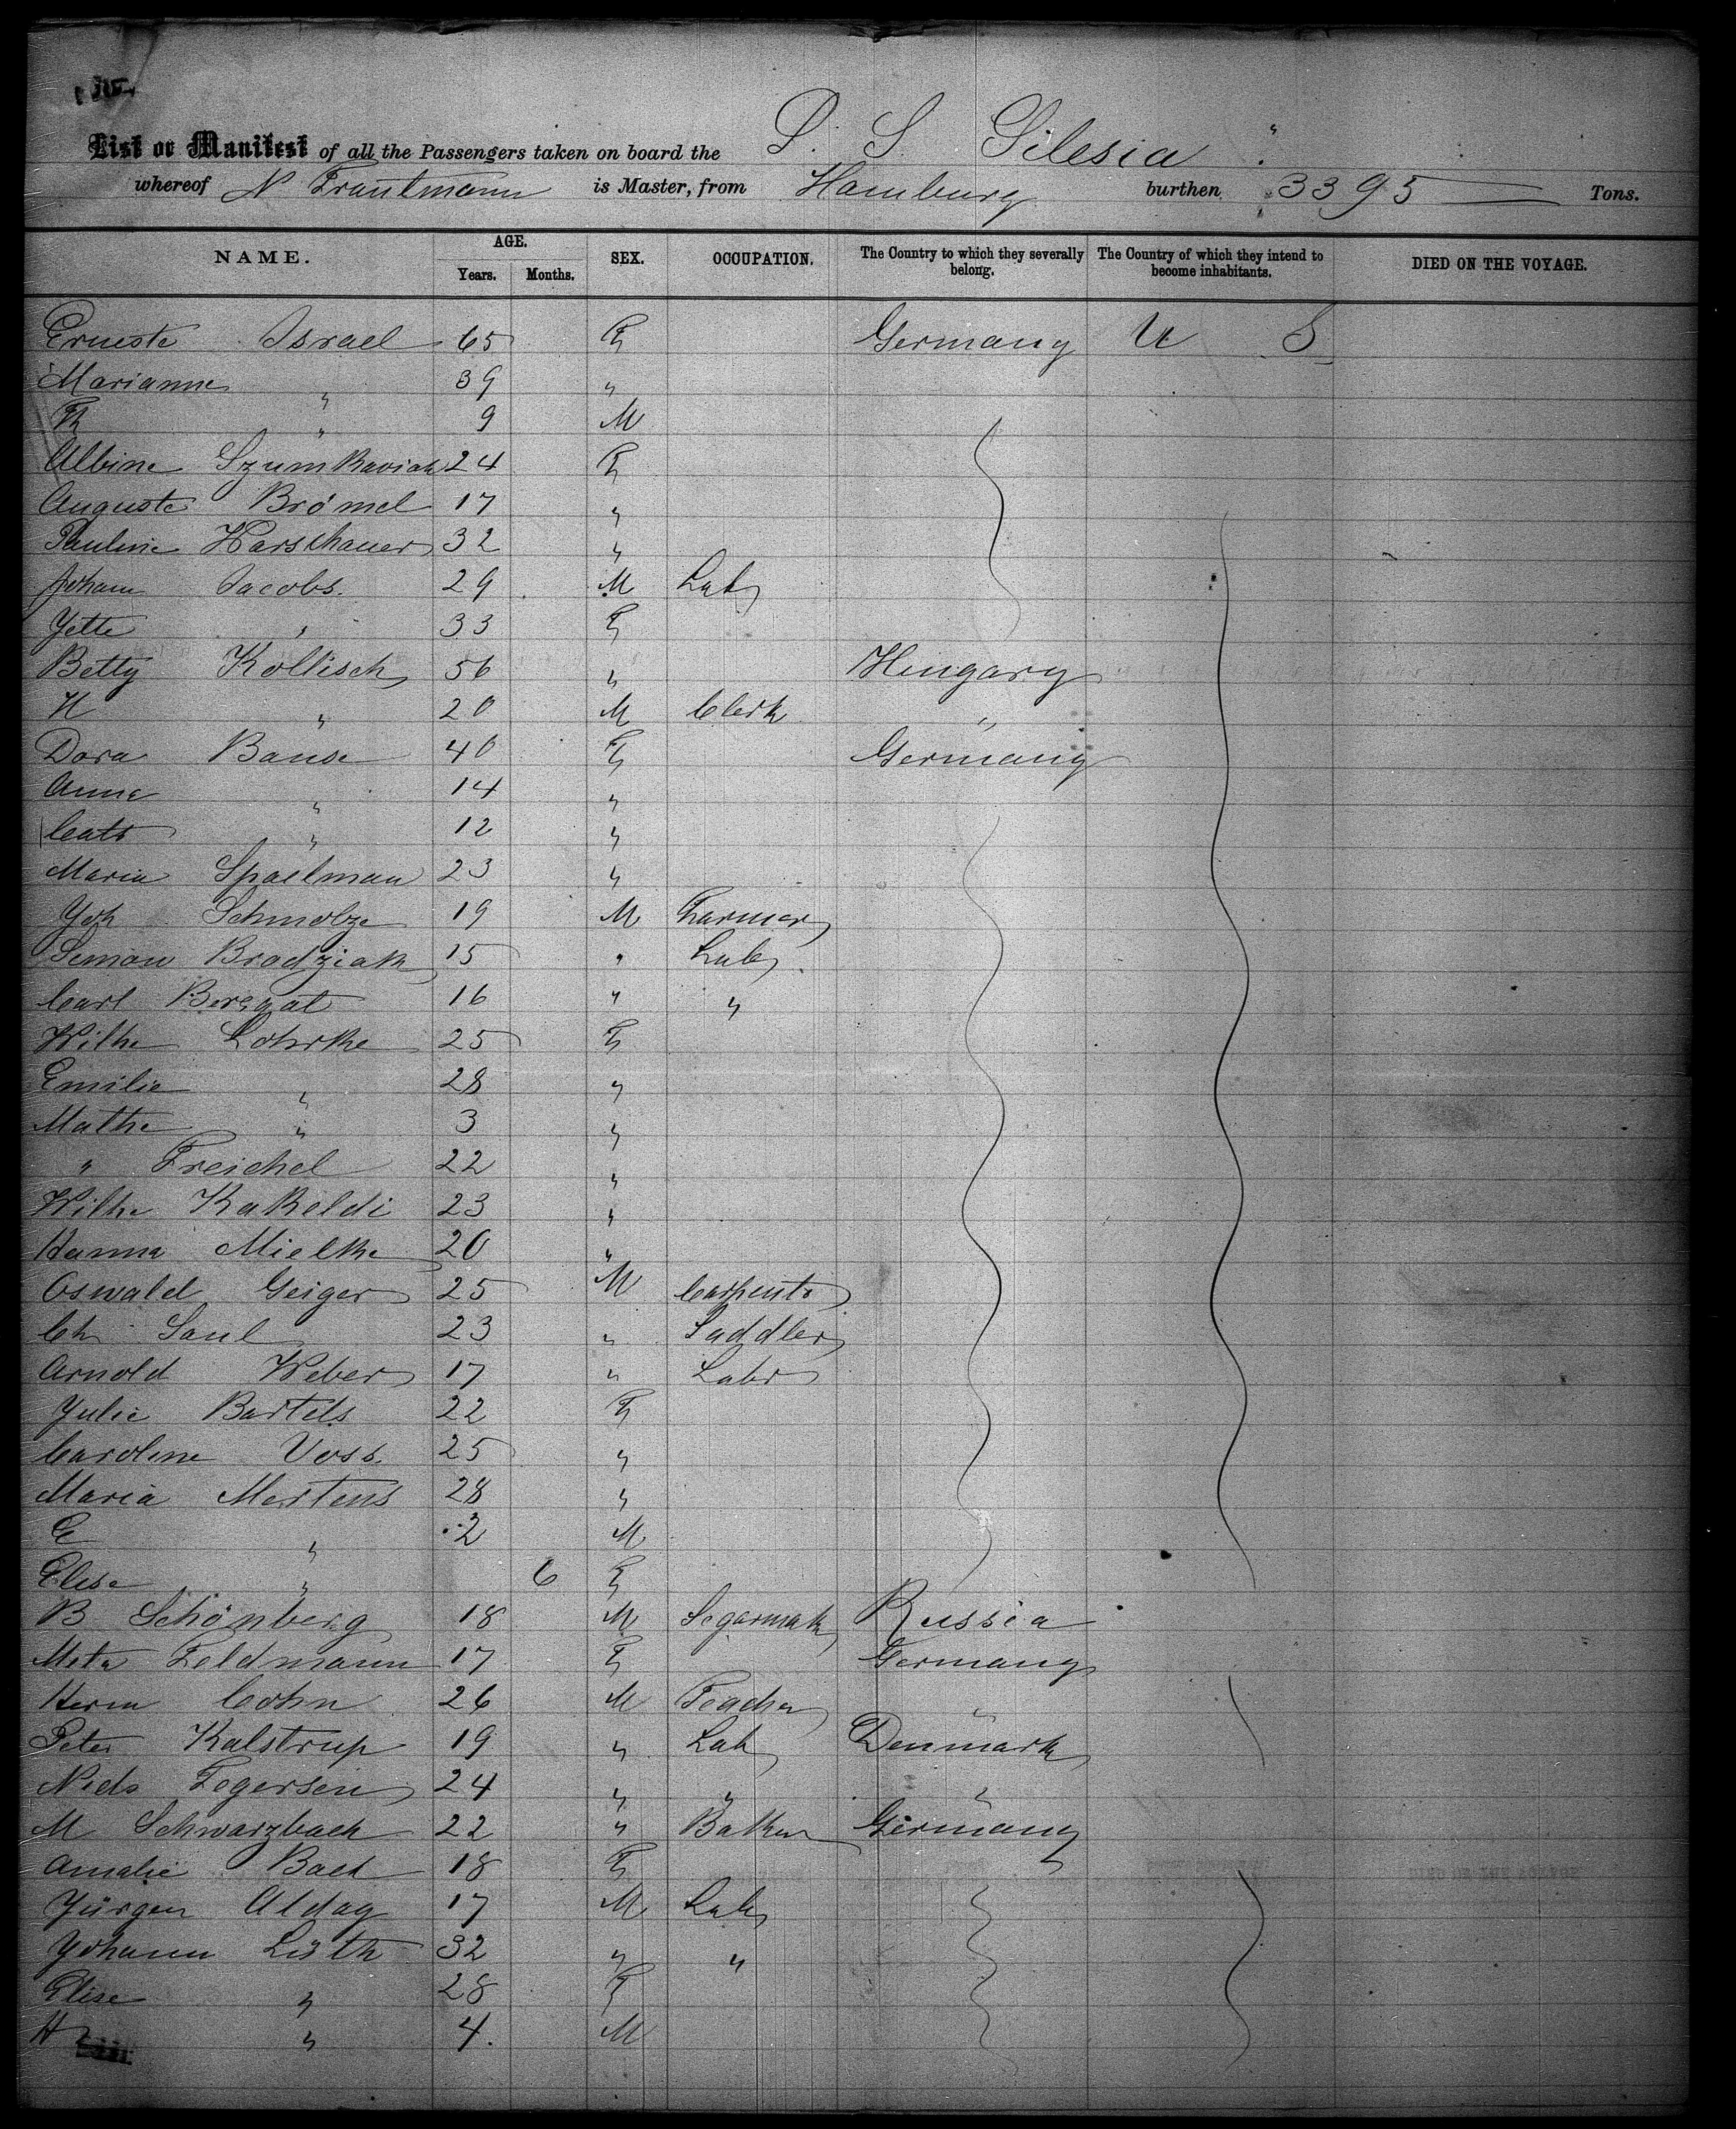 List or Manifest of all the Passengers taken on board the P. S. Silesia
whereof N Trautmann is Master, from Hamburg burthen 3395 Tons.
NAME. AGE. Years. Months. SEX. OCCUPATION. The Country to which they severally belong. The Country of which they intend to become inhabitants. DIED ON THE VOYAGE.
Erneste Israel 65 F Germany U S
Marianne " 39 "
" 9 M
Albine 24 F
Auguste Brömel 17 "
Pauline Harschauer 32 "
Johann Jacobs. 29 M Lab
Yette " 33 F
Betty Kollisch 56 " Hungary
H " 20 M Clerk "
Dora Banse 40 F Germany
Anna " 14 "
" 12 "
Maria Spaelman 23 "
Joh 19 M Farmer
Simon Brodziak 15 " Lab
Carl 16 " "
Wilhe Lohrke 25 F
Emilie " 28 "
Mathe " 3 "
" Treichel 22 "
Wilhe Kakeldi 23 "
Hanna Mielke 20 "
Oswald Geiger 25 M Carpente
Ch Saul 23 " Saddler
Arnold Weber 17 " Labr
Julie Bartels 22 F
Caroline Voss. 25 "
Maria Mertens 28 "
E " 2 M
Elise " 6 F
B Schönberg 18 M Segarmak Russia
Meta Feldmann 17 F Germany
Herm Cohn 26 M Teacher "
Peter Kalstrup 19 " Lab Denmark
Niels Tegersen 24 " " "
M Schwarzbach 22 " Baker Germany
Amalie 18 F
Jürgen Aldag 17 M Lab
Johann Lüth 32 " "
Elise " 28 F
H " 4. M